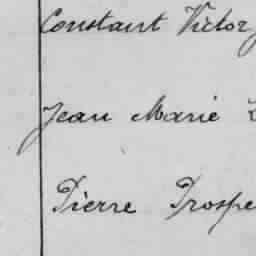 Constant Victor
Jean Marie
Pierre Prospe